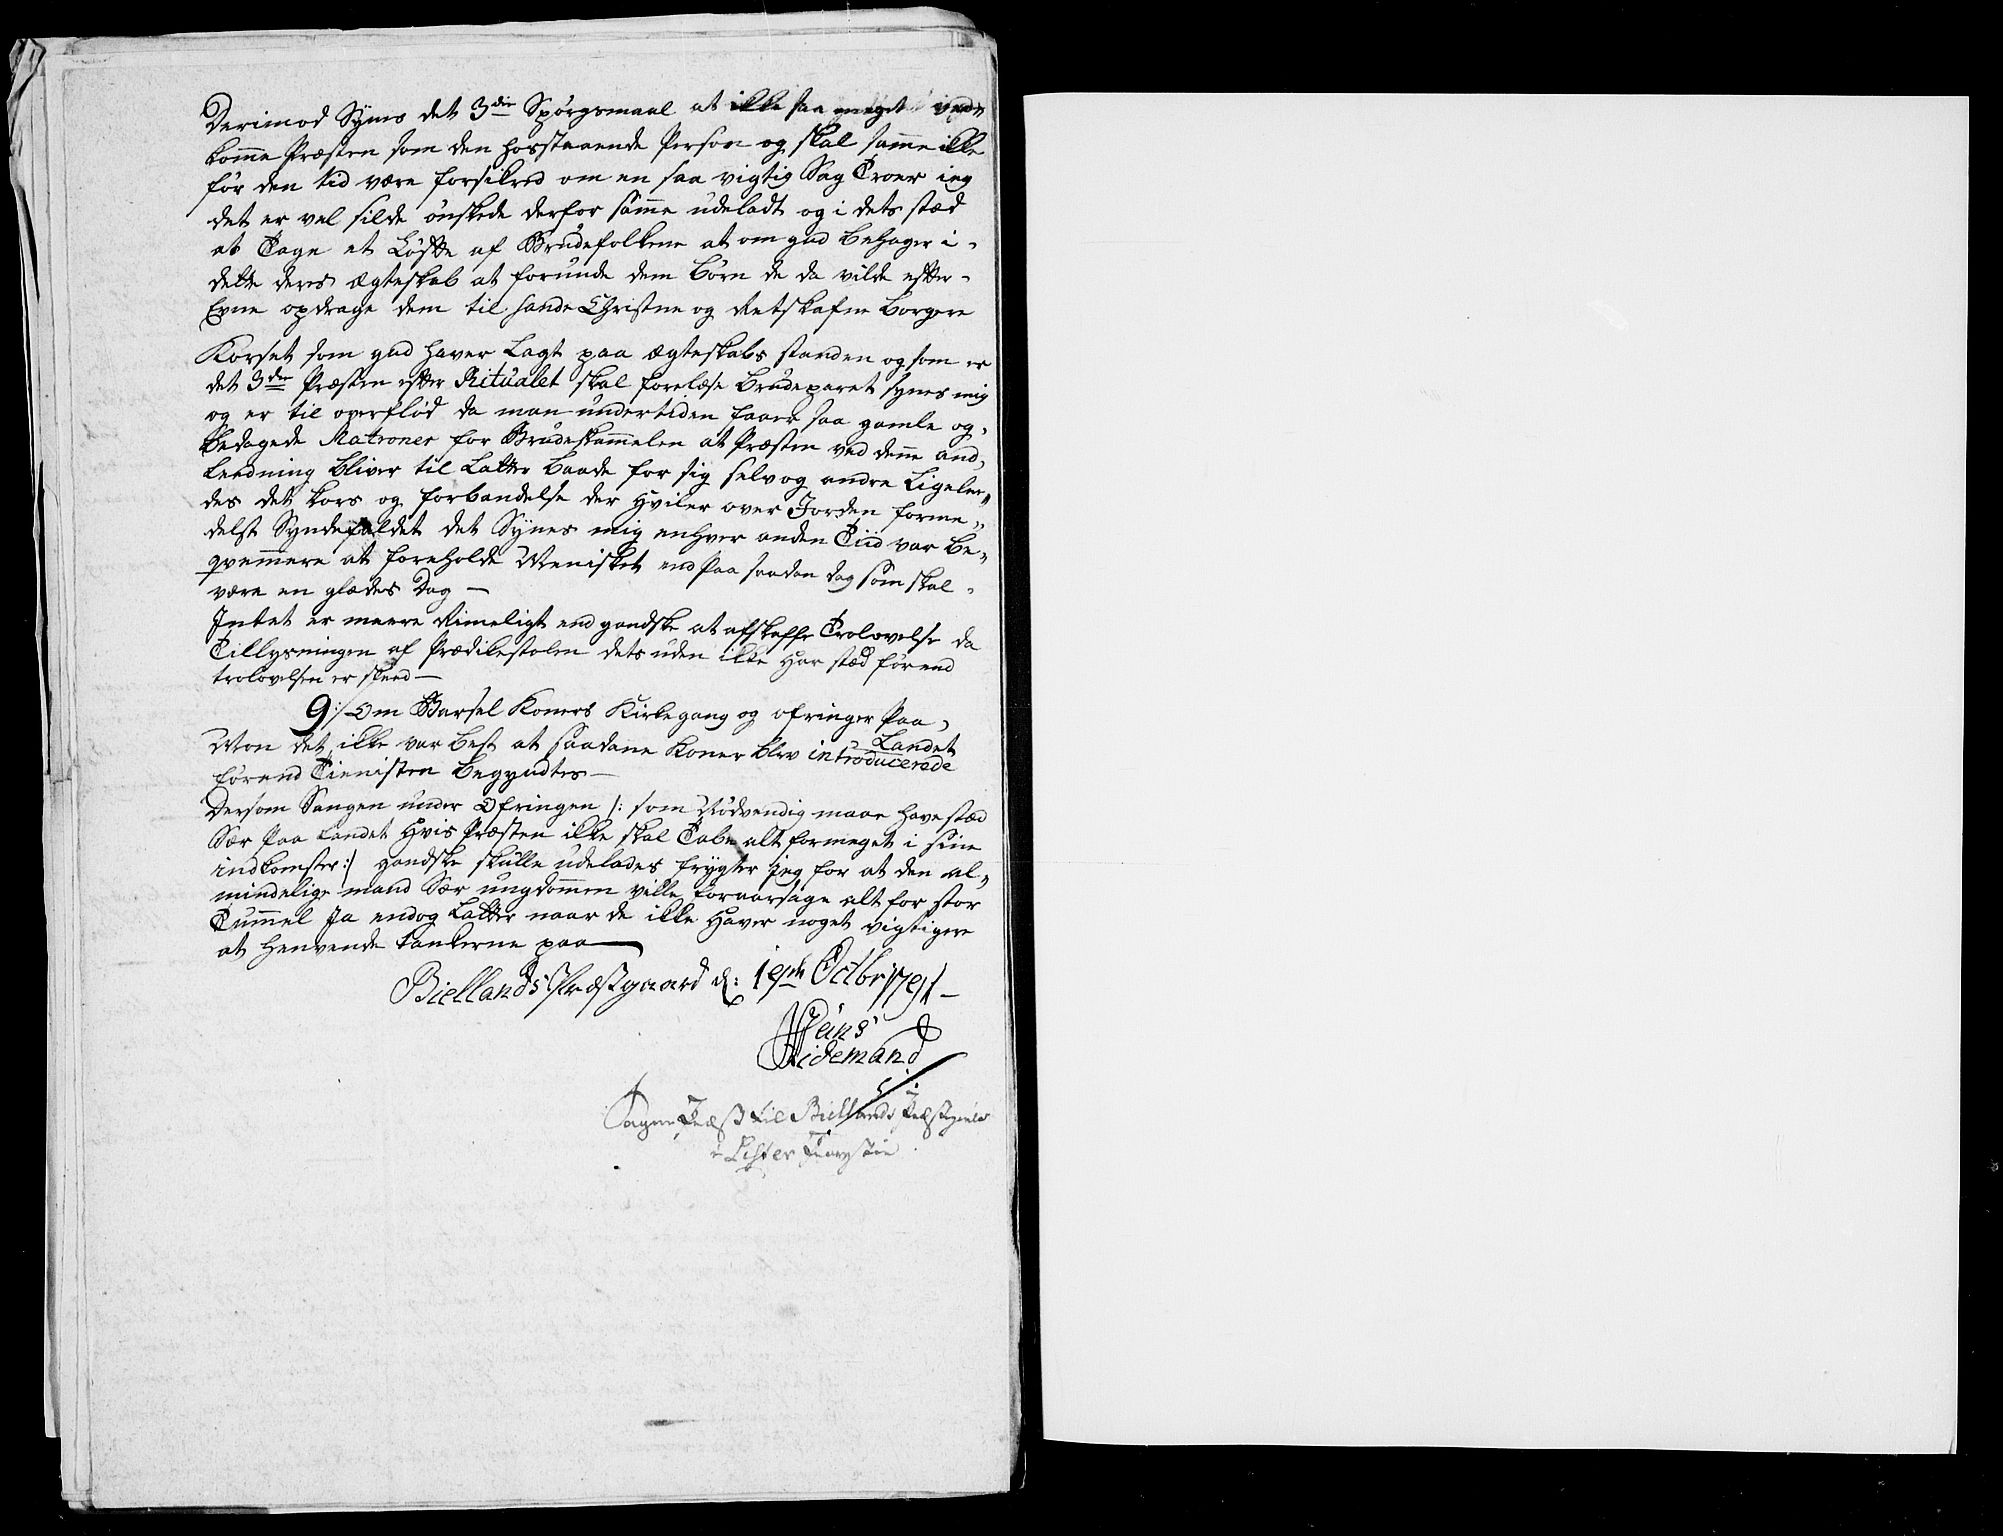 Derimod Synes det 3die Spørgsmaal at ikke saa meget ved-
komme Præsten som den hosstaaende Person og skal samme ikke
før den tid være forsikred om en saa vigtig Sag Troer ieg
det er vel silde ønskede derfor samme udeladt og i dets stæd
at Tage et Løfte af Brudefolkene at om gud behager i-
dette deres ægteskab at forunde dem børn de da vilde efter-
Evne opdrage dem til sande Christne og Retskafne borgere
Korset som gud haver Lagt paa ægteskabs standen og som er
det 3die Præsten efter Ritualet skal forelæse brudeparet synes mig
og er til operflød da man undertiden faaer saa gamle og-
bedagede Matroner for Brudeskammelen at Præsten ved denne and-
leedning bliver til Latter baade for sig selv og andre Ligele-
des det kors og forbandelse der Hviler over Jorden forme-
delst Syndefaldet det Synes mig enhver anden Tiid var be-
qvemmere at foreholde Menisket end Paa saadan dag som skal-
være en glædes Dag —
Intet er meere Rimeligt end gandske at afskaffe Trolovelse da
Tillysningen af Prædikestolen dets uden ikke Har stæd førend
trolovelsen er skeed —
9:/ Om Barsel Koners Kirkegang og ofringer Paa
Landet
Mon det ikke var best at saadane Koner blev introducerede
førend Tienisten begyndtes —
Dersom Sangen under Ofringen /: som Nødvendig maae have stæd
Sær Paa Landet Hvis Præsten ikke skal Tabe alt formeget i sine
indkomster :/ gandske skulle udelades frygter jeg for at den al-
mindelige mand Sær ungdommen ville foraarsage alt for stor
Tummel Ja endog Latter naar de ikke Haver noget vigtigere
at henvende tankerne paa —
Biellands Præstgaard d: 19de Octbr 1791 —
Jens
Tidemand
Sogne Præst til Biellands Præstgield
i Lister